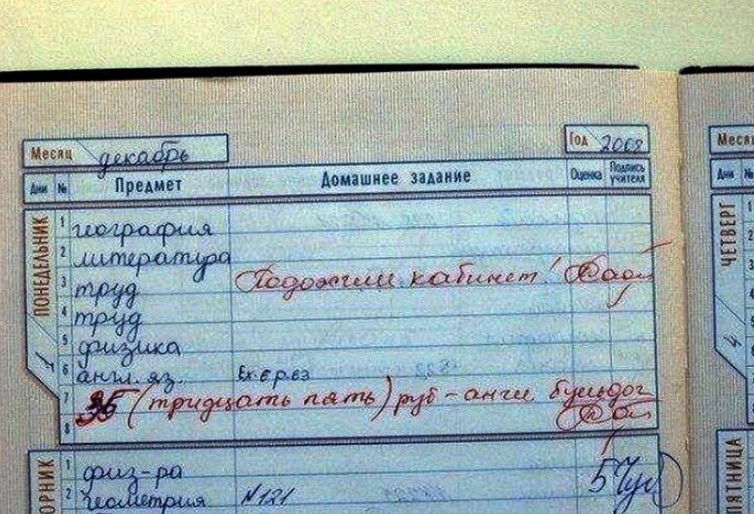 Месяц декабрь Год 2008 Месяц
Дни № Предмет Домашнее задание Оценка Подпись учителя Дни №
ПОНЕДЕЛЬНИК
1 география
2 литература
3 труд Подожгли кабинет!
4 труд
5 физика
6 англ. яз. Ex. 6 p. 63
7 35 (тридцать пять) руб - англ бульдог
8
ВТОРНИК
1 физ-ра
2 геометрия №121 5
ЧЕТВЕРГ
ПЯТНИЦА